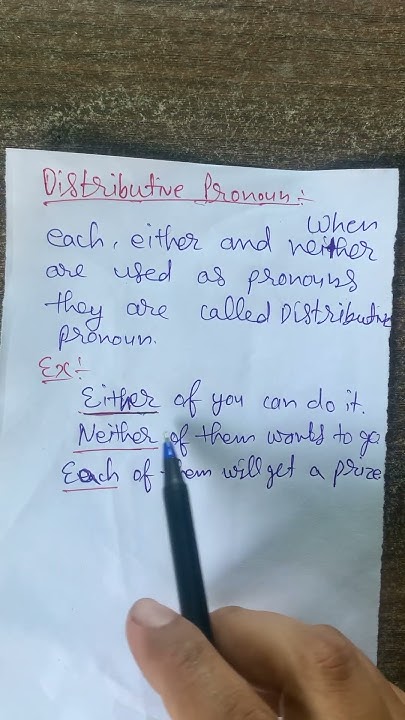 Distributive Pronoun :-
When
each, either and neither
are used as pronouns
they are called Distributive
pronoun.
Ex :-
Either of you can do it.
Neither of them wants to go
Each of them will get a prize